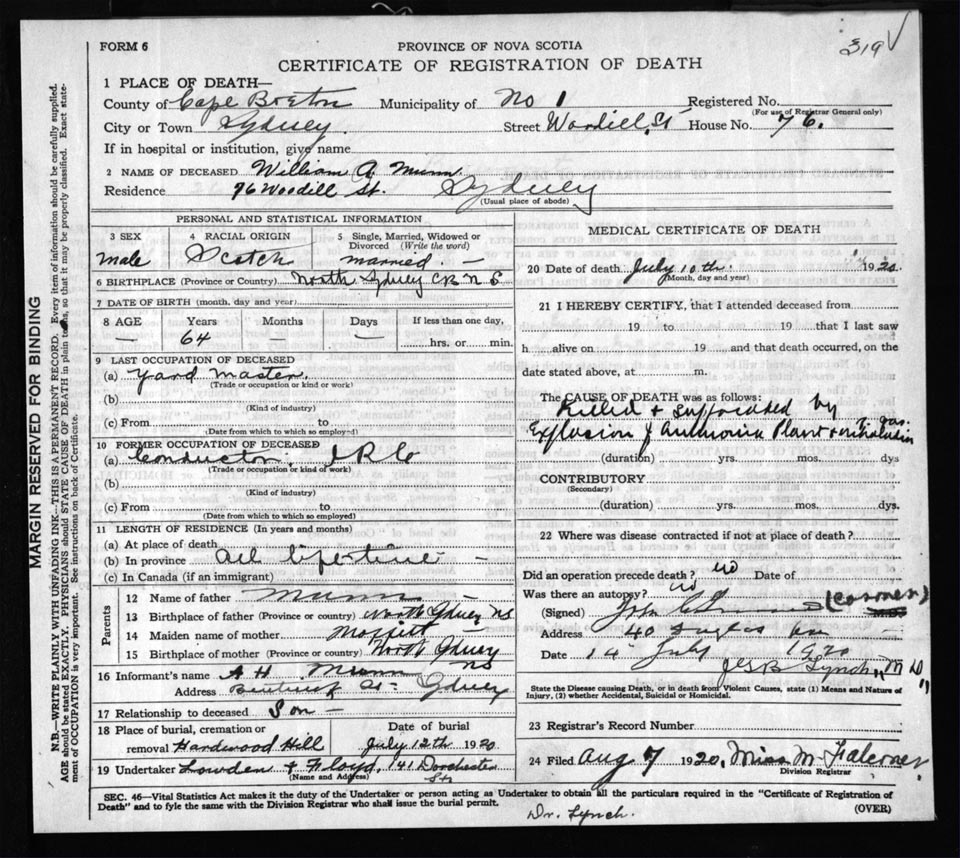 319 √
FORM 6
PROVINCE OF NOVA SCOTIA
CERTIFICATE OF REGISTRATION OF DEATH
1 PLACE OF DEATH—
County of Cape Breton Municipality of No 1 Registered No.
(For use of Registrar General only)
City or Town Sydney. Street Woodill St House No. 76.
If in hospital or institution, give name
2 NAME OF DECEASED William A. Munn
Residence 76 Woodill St. Sydney
(Usual place of abode)
PERSONAL AND STATISTICAL INFORMATION
3 SEX male
4 RACIAL ORIGIN Scotch
5 Single, Married, Widowed or Divorced (Write the word) married. —
6 BIRTHPLACE (Province or Country) North Sydney CB N S
7 DATE OF BIRTH (month, day and year)
8 AGE Years Months Days If less than one day,
— 64 — — hrs. or min.
9 LAST OCCUPATION OF DECEASED
(a) Yard Master.
(Trade or occupation or kind of work)
(b)
(Kind of industry)
(c) From to
(Date from which to which so employed)
10 FORMER OCCUPATION OF DECEASED
(a) Conductor,
(Trade or occupation or kind of work)
(b)
(Kind of industry)
(c) From to
(Date from which to which so employed)
11 LENGTH OF RESIDENCE (In years and months)
(a) At place of death
(b) In province all lifetime —
(c) In Canada (if an immigrant)
Parents
12 Name of father Munn —
13 Birthplace of father (Province or country) North Sydney NS
14 Maiden name of mother Moffett —
15 Birthplace of mother (Province or Country) North Sydney NS
16 Informant's name A H. Munn
Address Sydney
17 Relationship to deceased Son —
18 Place of burial, cremation or removal Hardwood Hill
Date of burial July 12th 1920
19 Undertaker Lowden & Floyd, 141 Dorchester St
(Name and Address)
MEDICAL CERTIFICATE OF DEATH
20 Date of death July 10th. 1920.
(Month, day and year)
21 I HEREBY CERTIFY, that I attended deceased from
19 to 19 that I last saw
h alive on 19 and that death occurred, on the
date stated above, at m.
The CAUSE OF DEATH was as follows:
Killed & Suffocated by
Explosion of Ammonia Plant gas
(duration) yrs. mos. dys
CONTRIBUTORY
(Secondary)
(duration) yrs. mos. dys.
22 Where was disease contracted if not at place of death?
Did an operation precede death? no Date of
Was there an autopsy? no
(Signed) (Coroner)
Address 40
Date 14 July 1920
Lynch, M D
State the Disease causing Death, or in death from Violent Causes, state (1) Means and Nature of
Injury, (2) whether Accidental, Suicidal or Homicidal.
23 Registrar's Record Number
24 Filed Aug 7 1920, Miss M. Falconer
Division Registrar
SEC. 46—Vital Statistics Act makes it the duty of the Undertaker or person acting as Undertaker to obtain all the particulars required in the "Certificate of Registration of
Death" and to fyle the same with the Division Registrar who shall issue the burial permit.
(OVER)
Dr. Lynch.
MARGIN RESERVED FOR BINDING
N.B.—WRITE PLAINLY WITH UNFADING INK—THIS IS A PERMANENT RECORD. Every item of information should be carefully supplied.
AGE should be stated EXACTLY. PHYSICIANS should STATE CAUSE OF DEATH in plain terms, so that it may be properly classified. Exact state-
ment of OCCUPATION is very important. See instructions on back of Certificate.